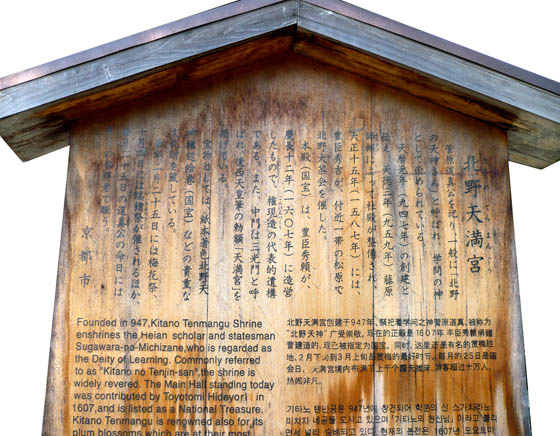 北野天満宮
菅原道真公を祀り、一般に「北野
の天神さん」と呼ばれ、学問の神
として崇められている。
天暦元年（九四七年）の創建と
伝え、天徳三年（九五九年）藤原
によって社殿が整備され、
天正十五年（一五八七年）には、
豊臣秀吉が、付近一帯の松原で
北野大茶会を催した。
本殿（国宝）は、豊臣秀頼が、
慶長十二年（一六〇七年）に造営
したもので、権現造の代表的遺構
である。また、中門は三光門と呼
ばれ、後西天皇筆の勅額「天満宮」を
掲げている。
宝物としては、紙本著色北野天
神縁起絵巻（国宝）などの貴重な
している。
二十五日には梅花祭、
が催されるほか
五日の道真公の命日には
京都市
Founded in 947,Kitano Tenmangu Shrine
enshrines the Heian scholar and statesman
Sugawara-no-Michizane,who is regarded as
the Deity of Learning. Commonly referred
to as "Kitano no Tenjin-san",the shrine is
widely revered. The Main Hall standing today
was contributed by Toyotomi Hideyori in
1607,and is listed as a National Treasure.
Kitano Tenmangu is renowned also for its
plum blossoms which are at their most
北野天满宫创建于947年、祭祀着学问之神菅原道真。被称为
"北野天神" 广受崇敬。现在的正殿是1607年 丰臣秀赖捐赠
营建造的、现已被指定为国宝。同时、这里还是有名的赏梅胜
地、2月下旬到3月上旬是赏梅的最好时节。每月的25日是庙
会日、天满宫境内布满了上千个露天摊床、游客超过十万人、
热闹非凡。
기타노 텐만궁은 947년에 창건되어 학문의 신 스가와라노
미치자네공을 모시고 있으며 「기타노의 천신님」이라고 불리
현재의 본전은 1607년 도요토미